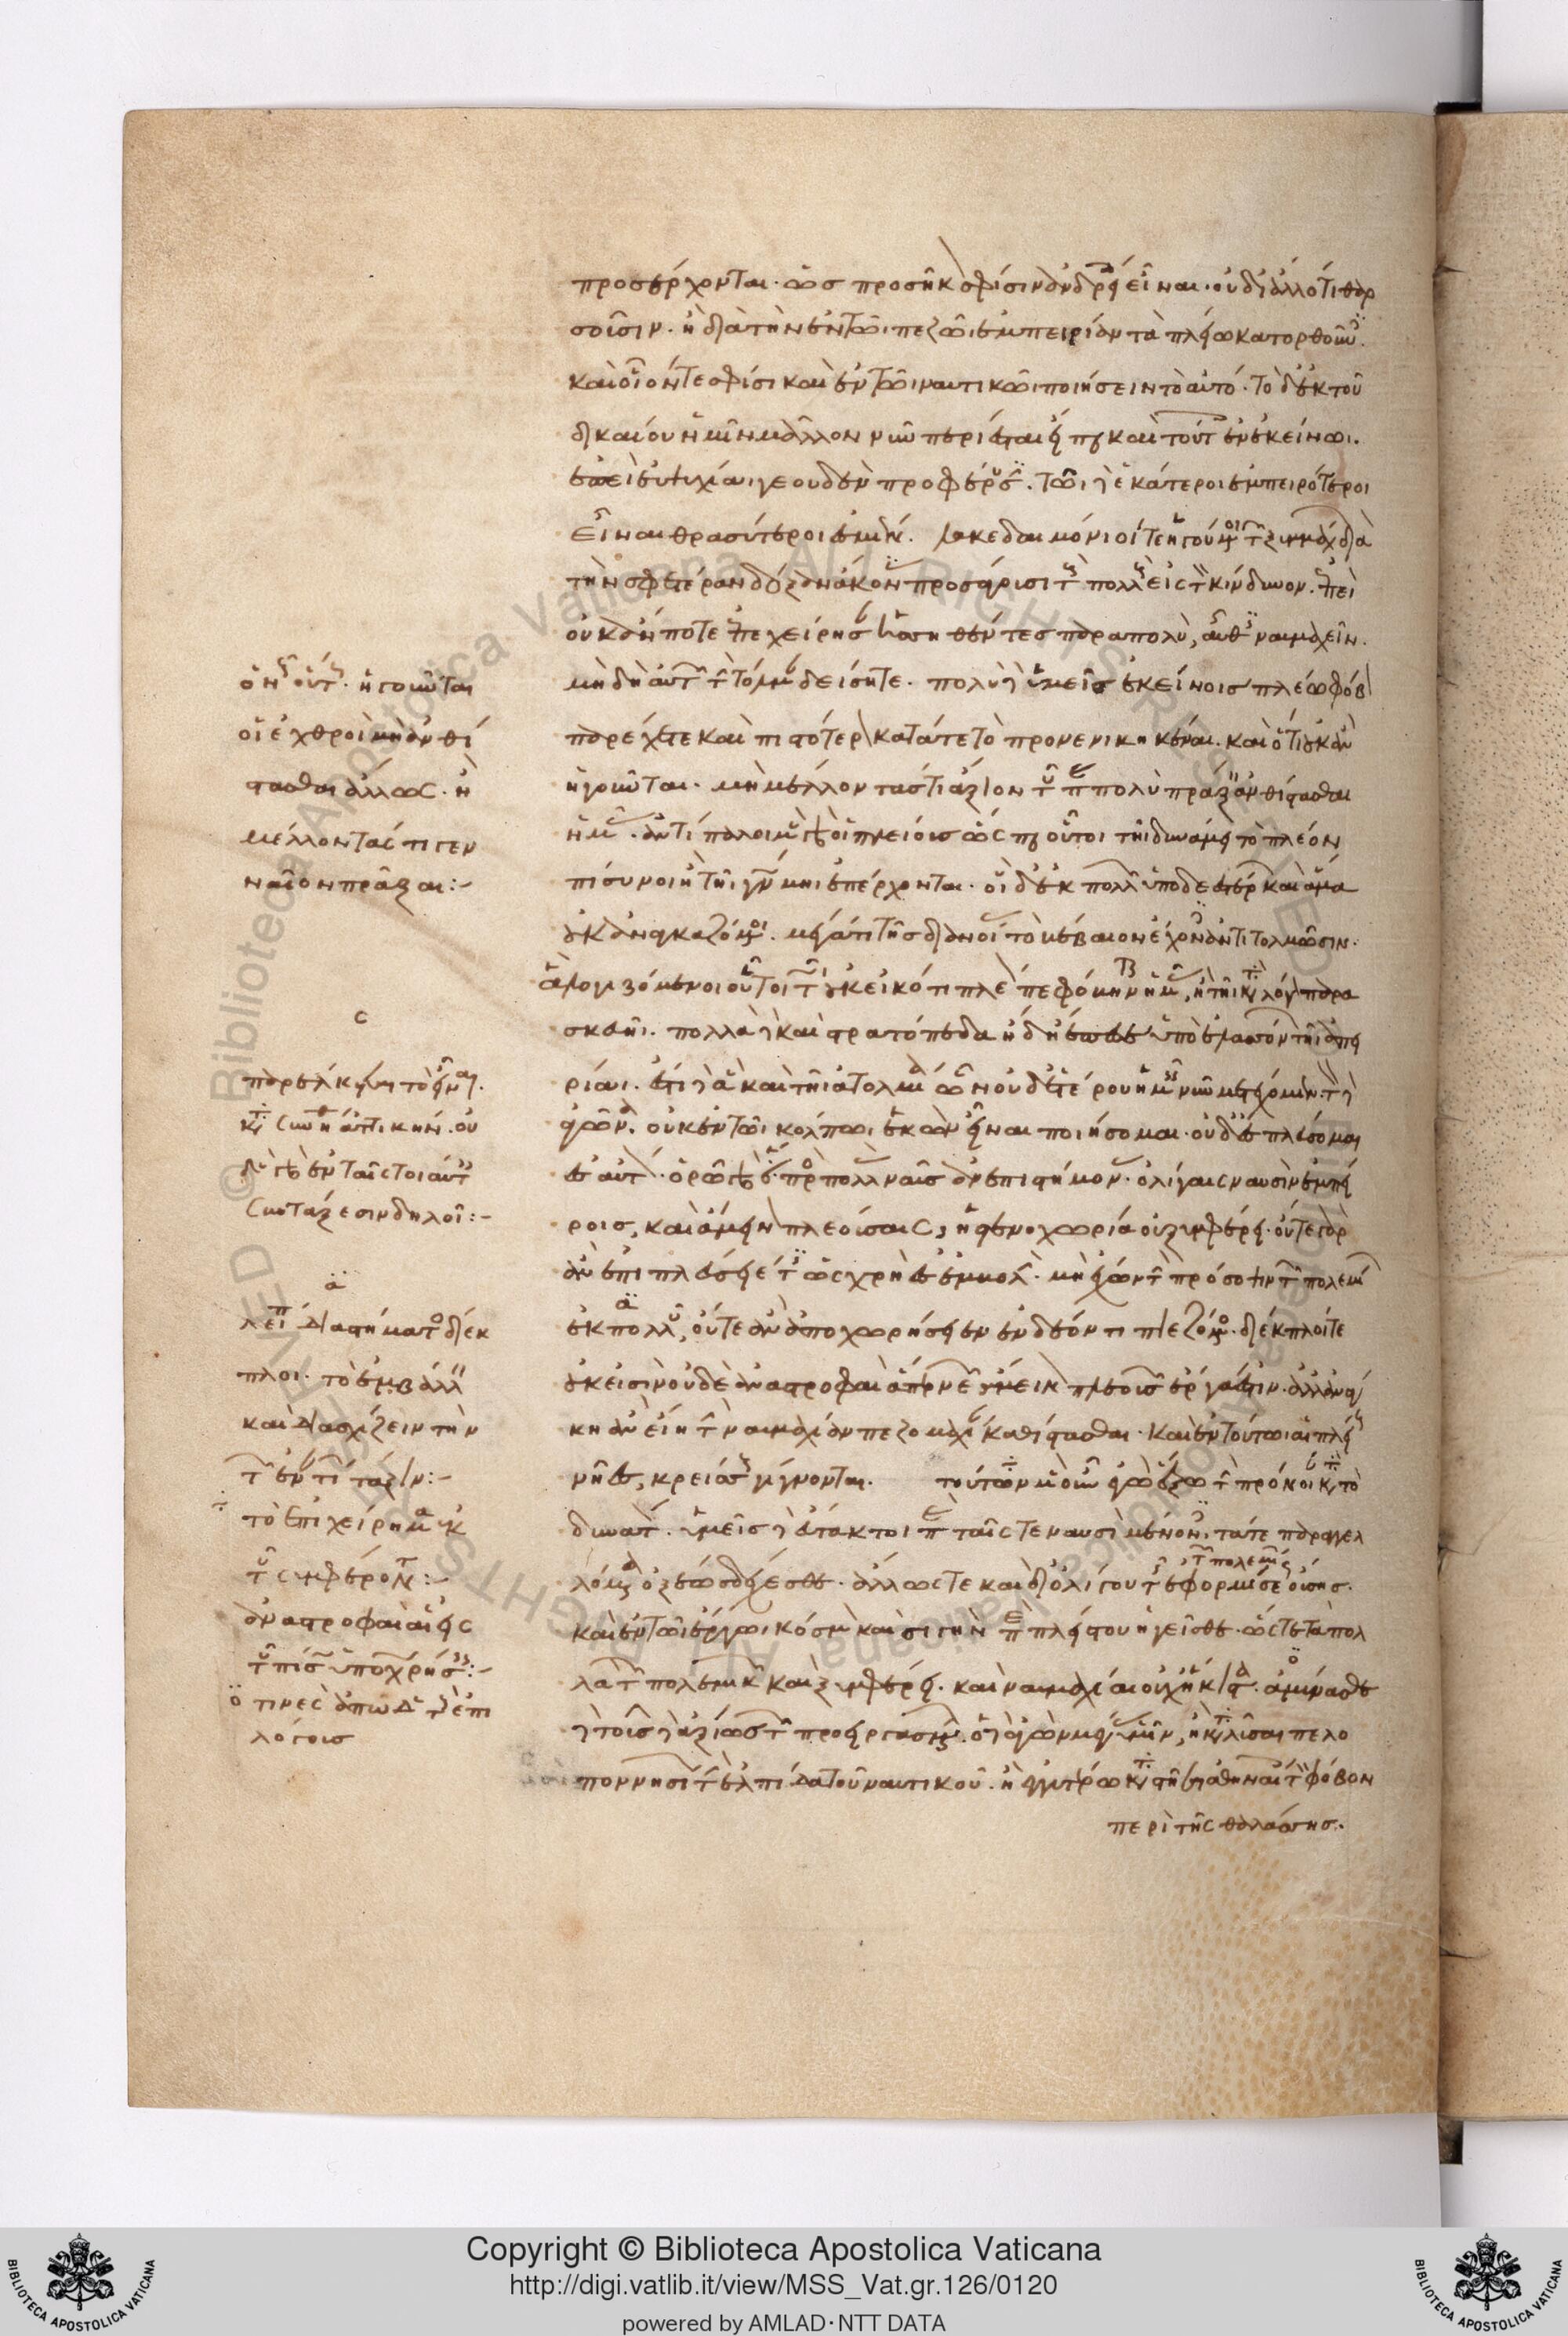 προσέρχονται. ὡς προσῆκον σφίσιν ἀνδρείοις εἶναι. οὐ δι' ἄλλό τι θαρ
σοῦσιν. ἢ διὰ τὴν ἐν τῶι πεζῶι ἐμπειρίαν τὰ πλείω κατορθοῦντες.
καὶ οἴονται σφίσι καὶ ἐν τῶι ναυτικῶι ποιήσειν τὸ αὐτό. τὸ δ' ἐκ τοῦ
δικαίου ἡμῖν μᾶλλον νῦν περιέσται εἴπερ καὶ τούτοις ἐν ἐκείνωι.
ἐπεὶ εὐψυχίαι γε οὐδὲν προφέρουσιν. τῶι δὲ ἑκάτεροι ἐμπειρότεροι
εἶναι θρασύτεροι ἐσμέν. λακεδαιμόνιοί τε ἡγούμενοι τῶν ξυμμάχων διὰ
τὴν σφετέραν δόξαν ἄκοντας προσάγουσι τοὺς πολλοὺς εἰς τὸν κίνδυνον. ἐπεὶ
οὐκ ἄν ποτε ἐπεχείρησαν ἡσσηθέντες παραπολὺ, αὖθις ναυμαχεῖν.
μὴ δὴ αὐτῶν τὴν τόλμαν δείσητε. πολὺ δὲ ὑμεῖς ἐκείνοις πλέω φόβον
παρέχετε καὶ πιστότερον κατά τε τὸ προνενικηκέναι. καὶ ὅτι οὐκ ἂν
ἡγοῦνται. μὴ μέλλοντάς τι ἄξιον τοῦ παρὰ πολὺ πράξειν ἀνθίστασθαι
ἡμᾶς. ἀντίπαλοι μὲν γὰρ οἱ πλείους ὥσπερ οὗτοι τῆι δυνάμει τὸ πλέον
πίσυνοι ἢ τῆι γνώμηι ἐπέρχονται. οἱ δ' ἐκ πολλῶ ὑποδεεστέρων καὶ ἅμα
οὐκ ἀναγκαζόμενοι. μέγά τι τῆς διανοίας τὸ βέβαιον ἔχοντες ἀντιτολμῶσιν.
ἃ λογιζόμενοι οὗτοι τῶ οὐκ εἰκότι πλέον πεφόβηνται ἡμᾶς, ἢ τῆι κατὰ λόγον παρα
σκευῆι. πολλὰ δὲ καὶ στρατόπεδα ἤδη ἔπεσεν ὑπὸ ἐλασσόνων τῆι ἀπει
ρίαι. ἔστι δὲ ἃ καὶ τῆι ἀτολμίαι ὧν οὐδετέρου ἡμεῖς νῦν μετέχομεν. τὸν δὲ
ἀγῶνα. οὐκ ἐν τῶι κόλπωι ἑκὼν εἶναι ποιήσομαι. οὐδὲ ἐσπλεύσομαι
ἐς αὐτόν. ὁρῶ γὰρ ὅτι πρὸς πολλὰς ναῦς ἀνεπιστήμονας. ὀλίγαις ναυσὶν ἐμπεί
ροις, καὶ ἄμεινον πλεούσαις, ἡ στενοχωρία οὐ ξυμφέρει. οὔτε γὰρ
ἂν ἐπιπλεύσειέ τις ὡς χρὴ ἐς ἐμβολὴν. μὴ ἔχων τὴν πρόσοψιν τῶν πολεμίων
ἐκ πολλοῦ, οὔτε ἂν ἀποχωρήσειεν ἐν δέοντι πιεζόμενος. διέκπλοί τε
οὐκ εἰσὶν οὐδὲ ἀναστροφαὶ ἅπερ νεῶν ἄμεινον πλεουσῶν ἔργά ἐστιν. ἀλλὰ ἀνάγ
κη ἂν εἴη τὴν ναυμαχίαν πεζομαχίαν καθίστασθαι. καὶ ἐν τούτωι αἱ πλείους
νῆες, κρείσσους γίγνονται. τούτων μὲν οὖν ἐγὼ ἕξω τὴν πρόνοιαν κατὰ τὸ
δυνατόν. ὑμεῖς δὲ εὔτακτοι παρὰ ταῖς τε ναυσὶ μένοντες. τά τε παραγγελ
λόμενα ὀξέως δέχεσθε. ἄλλως τε καὶ δι' ὀλίγου τῆς ἐφορμήσεως οὔσης.
τῶν πολεμίων
καὶ ἐν τῶι ἔργωι κόσμον καὶ σιγὴν περὶ πλείστου ἡγεῖσθε. ὥς τε τὰ πολ
λὰ τῶν πολεμικῶν καὶ ξυμφέρει. καὶ ναυμαχίαι οὐχ ἥκιστα. ἀμύνασθε
δὲ τούσδε ἀξίως τῶν προειργασμένων. ὁ δὲ ἀγὼν μέγας ὑμῖν, ἢ καταλῦσαι πελο
ποννησίων τὴν ἐλπίδα τοῦ ναυτικοῦ. ἢ ἐγγυτέρω καταστῆσαι ἀθηναίοις τὸν φόβον
περὶ τῆς θαλάσσης.
ὁ νοῦς οὗτος. ἡγοῦνται
οἱ ἐχθροὶ μὴ ἀνθί
στασθαι ἄλλως. ἢ
μέλλοντάς τι γεν
ναῖον πρᾶξαι:-
παρέλκει τὸ εἶναι.
κατὰ συνήθειαν ἀττικήν.
ἐν ταῖς τοιαύταις
συντάξεσιν δηλοῖ:-
λείπει διαστήματος διέκ
πλοι. τὸ ἐμβάλλειν
καὶ διασχίζειν τὴν
τῶν ἐναντίων τάξιν:-
τὸ ἐπιχείρημα ἐκ
τοῦ συμφέροντος:-
ἀναστροφαὶ
τινὲς ἀπὸ δὲ τοῦ ἐπι
λόγοις
Copyright © Biblioteca Apostolica Vaticana
http://digi.vatlib.it/view/MSS_Vat.gr.126/0120
powered by AMLAD·NTT DATA
BIBLIOTECA APOSTOLICA VATICANA
BIBLIOTECA APOSTOLICA VATICANA